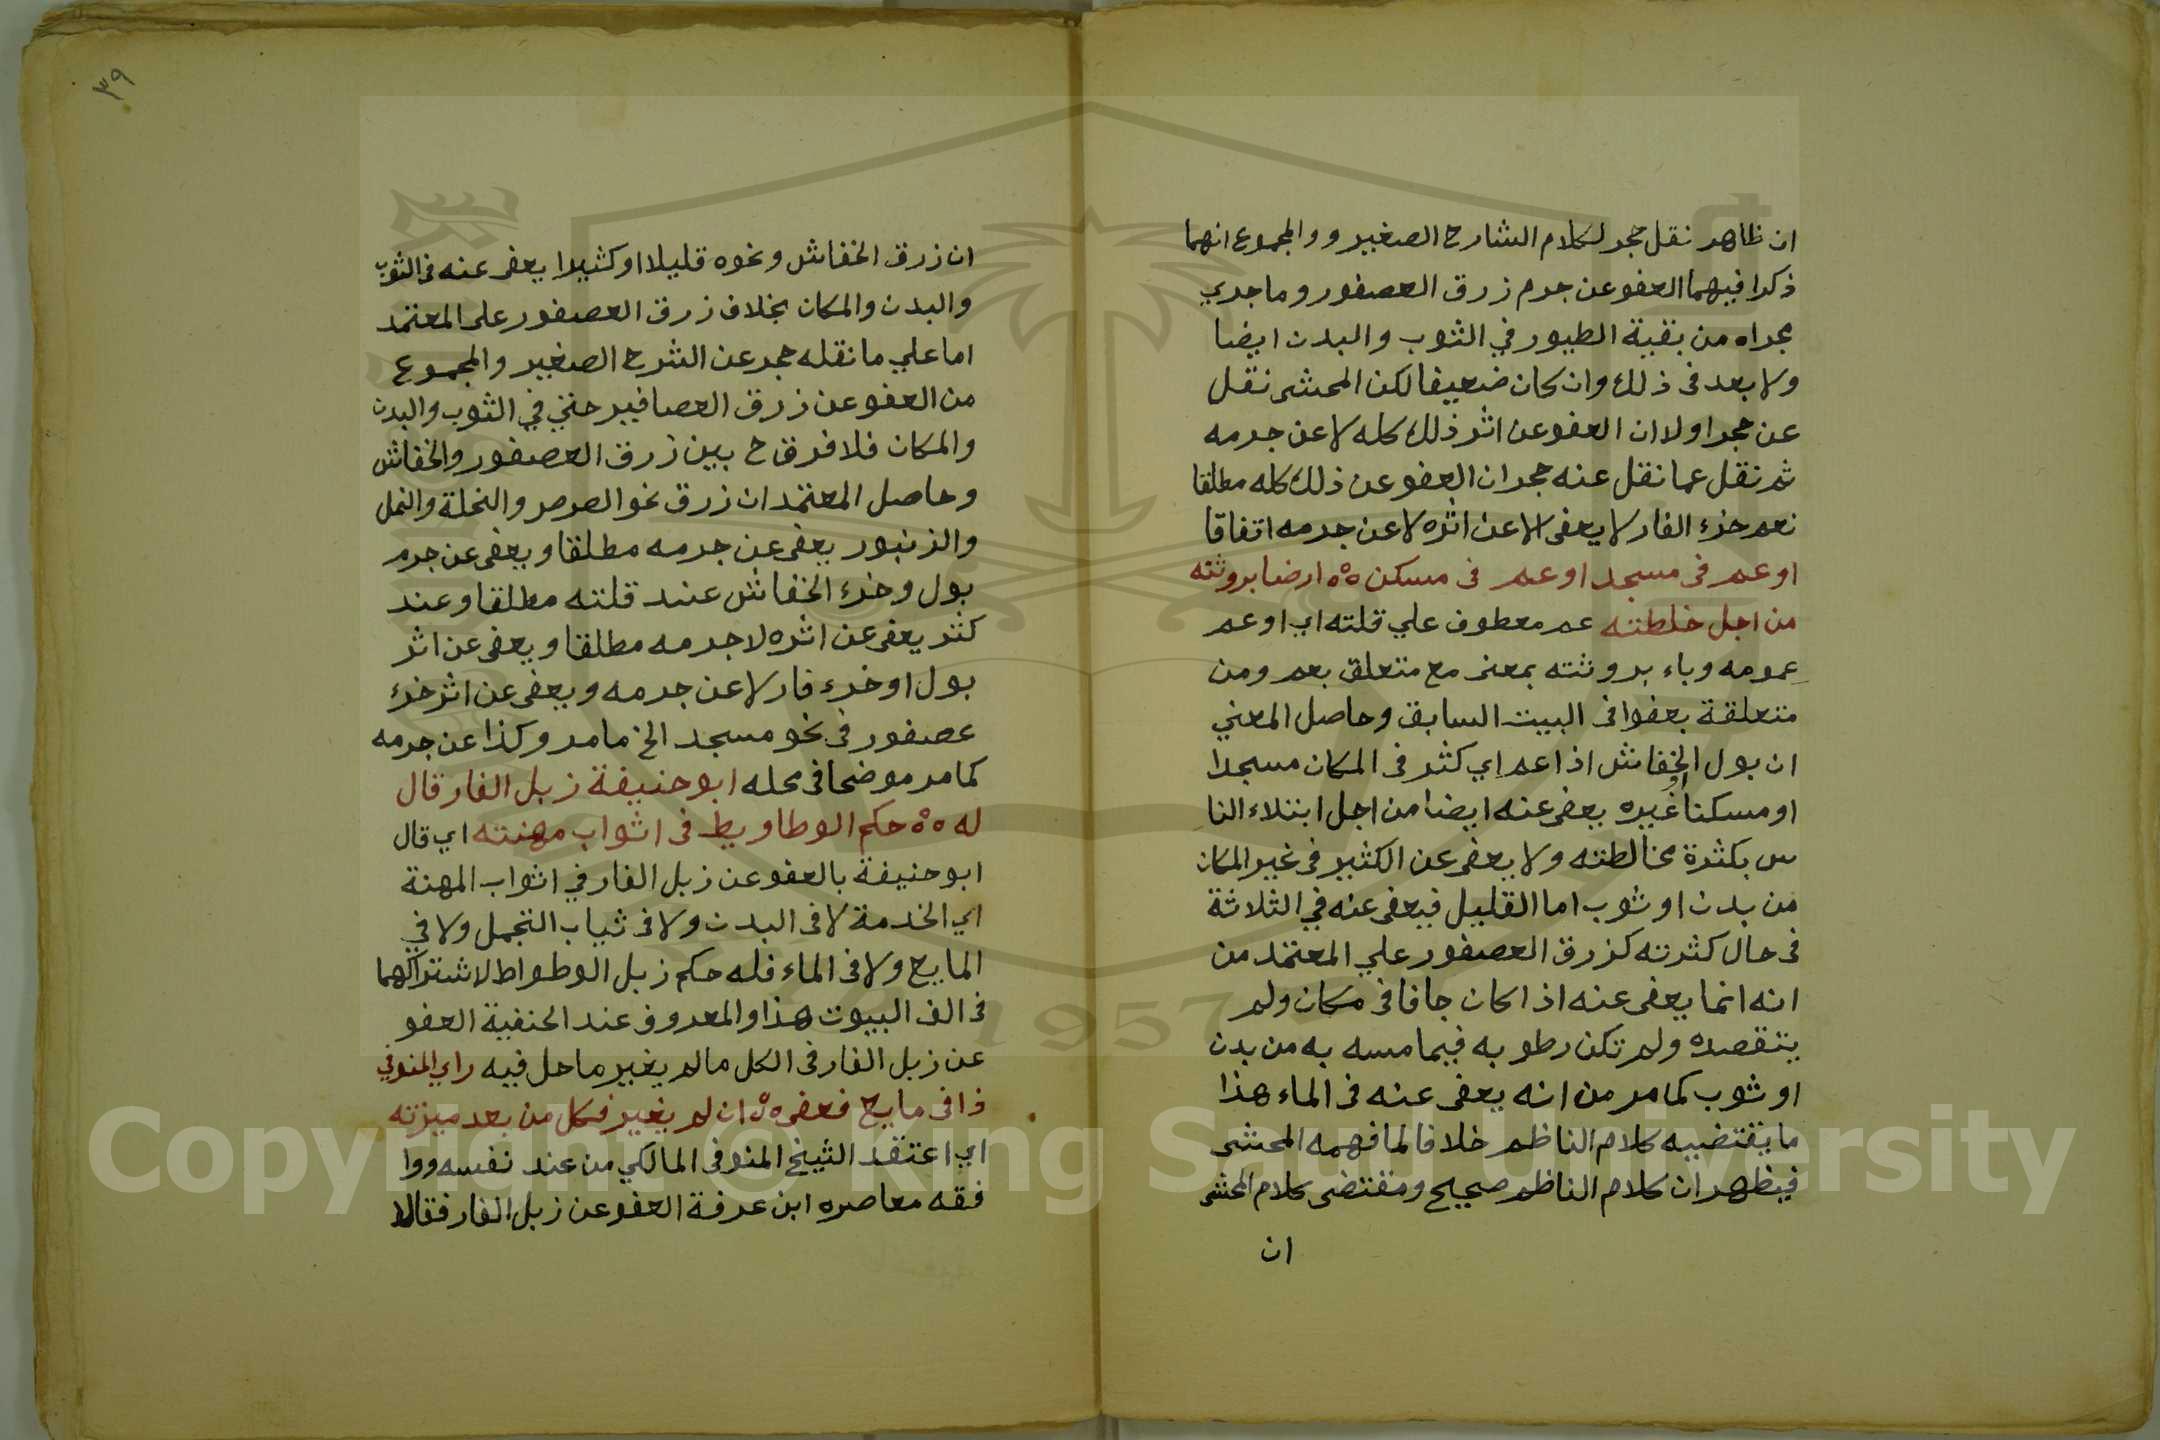 ان ظاهر نقل حجر لكلام الشارح الصغير و والمجموع انهما
ذكرا فيهما العفو عن جرم زرق العصفور وما جري
مجراه من بقية الطيور في الثوب والبدن ايضا
ولا بعد فى ذلك وان كان ضعيفا لكن المحشى نقل
عن حجر اولا ان العفو عن اثر ذلك كله لا عن جرمه
ثم نقل عما نقل عنه حجر ان العفو عن ذلك كله مطلقا
نعم خرء الفار لا يعفى الا عن اثره لا عن جرمه اتفاقا
او عم فى مسجد او عم فى مسكن ٥٥ ارضا بروثته
من اجل خلطته عم معطوف علي قلته اي او عم
عمومه وباء بروثته بمعنى مع متعلق بعم ومن
متعلقة بعفوا فى البيت السابق وحاصل المعني
ان بول الخفاش اذا عم اي كثر فى المكان مسجدا
او مسكنا او غيره يعفى عنه ايضا من اجل ابتلاء النا
س بكثرة مخالطته ولا يعفى عن الكثير فى غير المكان
من بدن او ثوب اما القليل فيعفى عنه في الثلاثة
فى حال كثرته كزرق العصفور علي المعتمد من
انه انما يعفى عنه اذا كان جافا فى مكان ولم
يتقصده ولم تكن رطوبه فيما مسه به من بدن
او ثوب كما مر من انه يعفى عنه فى الماء هذا
ما يقتضيه كلام الناظم خلافا لما فهمه المحشى
فيظهر ان كلام الناظم صحيح ومقتضى كلام المحشى
ان
٣٩
ان زرق الخفاش ونحوه قليلا او كثيرا يعفى عنه فى الثوب
والبدن والمكان بخلاف زرق العصفور على المعتمد
اما علي ما نقله حجر عن الشرح الصغير والمجموع
من العفو عن زرق العصافير حتي في الثوب والبدن
والمكان فلا فرق ح بين زرق العصفور والخفاش
وحاصل المعتمد ان زرق نحو الصرصر والنحلة والنمل
والزنبور يعفى عن جرمه مطلقا ويعفى عن جرم
بول وخرء الخفاش عند قلته مطلقا وعند
كثر يعفى عن اثره لا جرمه مطلقا ويعفى عن اثر
بول او خرء فار لا عن جرمه ويعفى عن اثر خرء
عصفور فى نحو مسجد الخ ما مر وكذا عن جرمه
كما مر موضحا فى محله ابو حنيفة زبل الفار قال
له ٥٥ حكم الوطاويط فى اثواب مهنته اي قال
ابو حنيفة بالعفو عن زبل الفار في اثواب المهنة
اي الخدمة لا فى البدن ولا فى ثياب التجمل ولا في
المايع ولا فى الماء فله حكم زبل الوطواط لاشتراكهما
فى الف البيوت هذا والمعروف عند الحنفية العفو
عن زبل الفار فى الكل ما لم يغير ما حل فيه راي المنوفي
ذا فى مايع فعفى ٥٥ ان لم يغير فكل من بعد ميزته
اي اعتقد الشيخ المنوفى المالكي من عند نفسه ووا
فقه معاصره ابن عرفة العفو عن زبل الفار فقالا
Copyright © King Saud University
1957